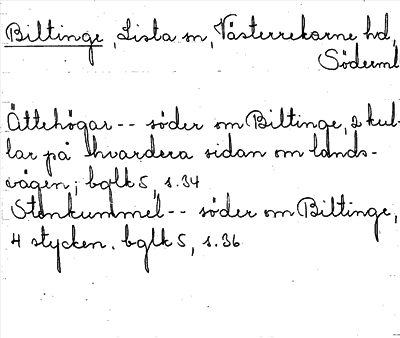 Biltinge, Lista sn, Västerrekarne hd,
Söderml
Ättehögar -- söder om Biltinge, 2 kul-
lar på hvardera sidan om lands-
vägen; bglk 5, s. 34
Stenkummel -- söder om Biltinge,
4 stycken. bglk 5, s. 36